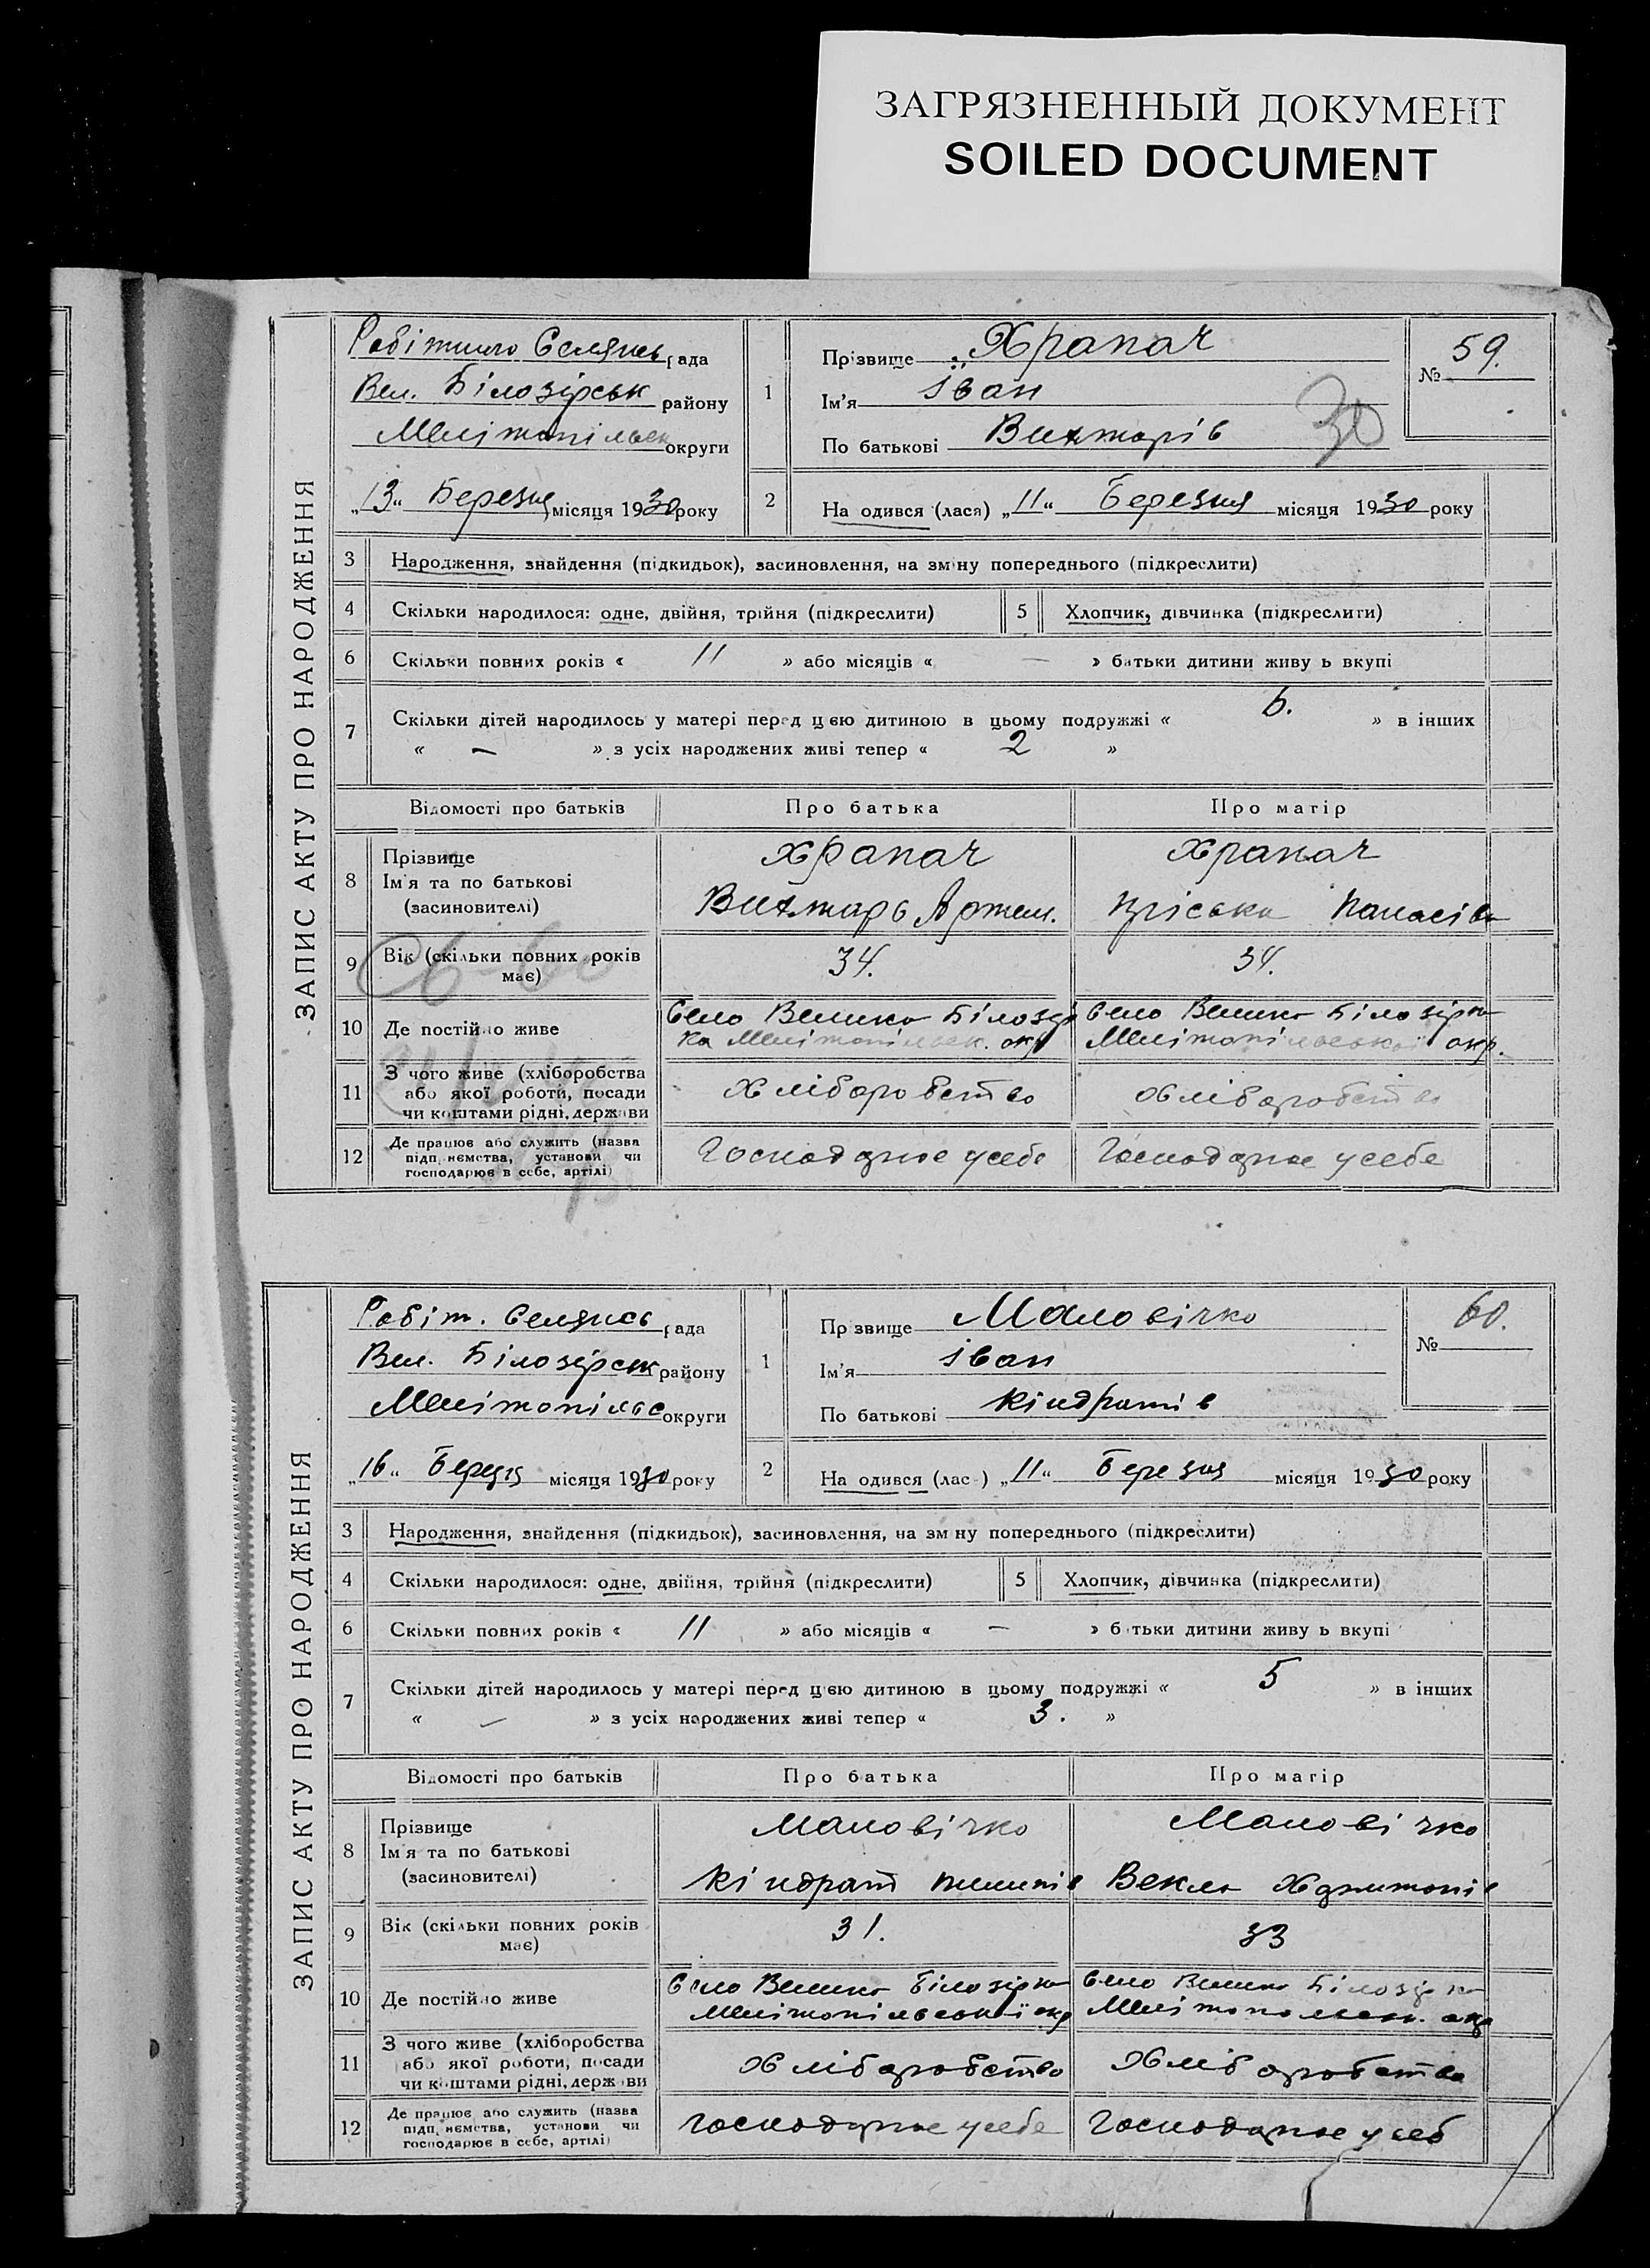 ЗАГРЯЗНЕННЫЙ ДОКУМЕНТ
SOILED DOCUMENT
ЗАПИС АКТУ ПРО НАРОДЖЕННЯ
Робітничо Селянсь рада
Вел. Білозірськ району
Мелітопільськ округи
„13“ Березня місяця 1930 року
1
Прізвище Храпач
Ім'я Іван
По батькові Вихторів
30
№ 59.
2
Народився (лася) „11“ Березня місяця 1930 року
3 Народження, знайдення (підкидьок), засиновлення, на зміну попереднього (підкреслити)
4 Скільки народилося: одне, двійня, трійня (підкреслити)
5 Хлопчик, дівчинка (підкреслити)
6 Скільки повних років « 11 » або місяців « — » батьки дитини живуть вкупі
7 Скільки дітей народилось у матері перед цією дитиною в цьому подружжі « 6. » в інших
« — » з усіх народжених живі тепер « 2 »
Відомості про батьків Про батька Про матір
8 Прізвище Ім'я та по батькові (засиновителі)
Храпач Храпач
Вихтарь Артем. Пріська Панасівн
9 Вік (скільки повних років має) 34. 34.
10 Де постійно живе
Село Велика Білозір Село Велика Білозірка
ка Мелітопільськ. окр Мелітопільської окр.
11 З чого живе (хліборобства або якої роботи, посади чи коштами рідні, держави
Хліборобство Хліборобство
12 Де працює або служить (назва підприємства, установи чи господарює в себе, артілі)
Господарює усебе Господарює усебе
ЗАПИС АКТУ ПРО НАРОДЖЕННЯ
Робіт. Селянсь рада
Вел. Білозірськ району
Мелітопільс округи
„16“ Березня місяця 1930 року
1
Прізвище Маловічко
Ім'я Іван
По батькові Кіндратів
№ 60.
2
Народився (лась) „11“ Березня місяця 1930 року
3 Народження, знайдення (підкидьок), засиновлення, на зміну попереднього (підкреслити)
4 Скільки народилося: одне, двійня, трійня (підкреслити)
5 Хлопчик, дівчинка (підкреслити)
6 Скільки повних років « 11 » або місяців « — » батьки дитини живуть вкупі
7 Скільки дітей народилось у матері перед цією дитиною в цьому подружжі « 5 » в інших
« — » з усіх народжених живі тепер « 3. »
Відомості про батьків Про батька Про матір
8 Прізвище Ім'я та по батькові (засиновителі)
Маловічко Маловічко
Кіндрат Пилипів Векла
9 Вік (скільки повних років має) 31. 33
10 Де постійно живе
Село Велика Білозірка Село Велика Білозірка
Мелітопільської окр Мелітопольськ. окр
11 З чого живе (хліборобства або якої роботи, посади чи коштами рідні, держави
Хліборобство Хліборобство
12 Де працює або служить (назва підприємства, установи чи господарює в себе, артілі)
Господарює усебе Господарює усеб